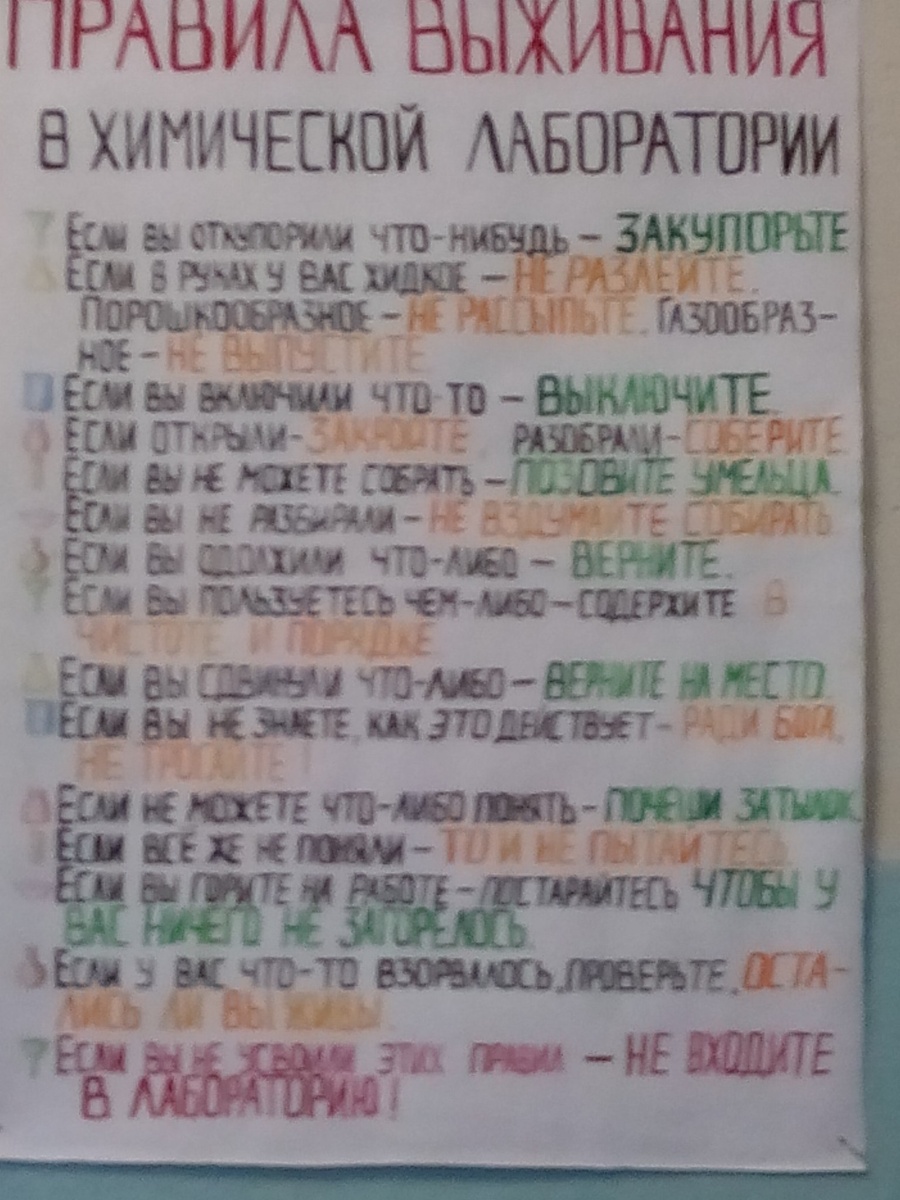 ПРАВИЛА ВЫЖИВАНИЯ
В ХИМИЧЕСКОЙ ЛАБОРАТОРИИ
Если вы откупорили что-нибудь – ЗАКУПОРЬТЕ
Если в руках у вас жидкое – НЕ РАЗЛЕЙТЕ.
Порошкообразное – НЕ РАССЫПЬТЕ. Газообраз-
ное – НЕ ВЫПУСТИТЕ
Если вы включили что-то – ВЫКЛЮЧИТЕ.
Если открыли – ЗАКРОЙТЕ. разобрали – СОБЕРИТЕ
Если вы не можете собрать – ПОЗОВИТЕ УМЕЛЬЦА.
Если вы не разбирали – НЕ ВЗДУМАЙТЕ СОБИРАТЬ
Если вы одолжили что-либо – ВЕРНИТЕ.
Если вы пользуетесь чем-либо – содержите В
ЧИСТОТЕ И ПОРЯДКЕ
Если вы сдвинули что-либо – ВЕРНИТЕ НА МЕСТО.
Если вы не знаете, как это действует – РАДИ БОГА,
НЕ ТРОГАЙТЕ!
Если не можете что-либо понять – ПОЧЕШИ ЗАТЫЛОК
Если всё же не поняли – ТО И НЕ ПЫТАЙТЕСЬ
Если вы горите на работе – постарайтесь ЧТОБЫ У
ВАС НИЧЕГО НЕ ЗАГОРЕЛОСЬ.
Если у вас что-то взорвалось, проверьте, ОСТА-
ЛИСЬ ЛИ ВЫ ЖИВЫ.
Если вы не усвоили этих правил – НЕ ВХОДИТЕ
В ЛАБОРАТОРИЮ!